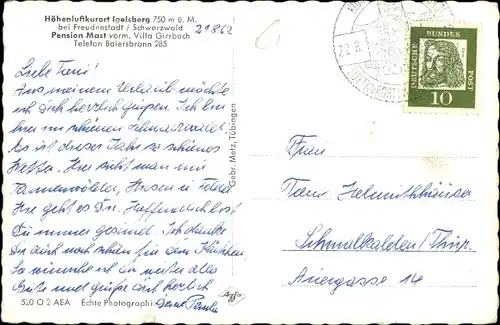 Höhenluftkurort Igelsberg 750 m ü. M.
bei Freudenstadt / Schwarzwald
Pension Mast vorm. Villa Girrbach
Telefon Baiersbronn 285
21862
22.8.
DEUTSCHE BUNDES POST
10
Liebe Treni!
Aus meinem Verlaub möchte
ich Dich herzlich grüßen. Ich bin
hier im schönen Schwarzwald.
Es ist dieses Jahr so schönes
Wetter. Hier sieht man nur
Tannenwälder, Wiesen u. Felder
Wie geht es Dir. Hoffendlich bist
Du immer gesund. Ich danke
Dir auch noch schön für dein
So nimm ich dir weiter alles
Gute und grüße dich herzlich
deine
Gebr. Metz, Tübingen
Frau
Schmalkalden/Thür.
Auergasse 14
520 O 2 AEA Echte Photographie